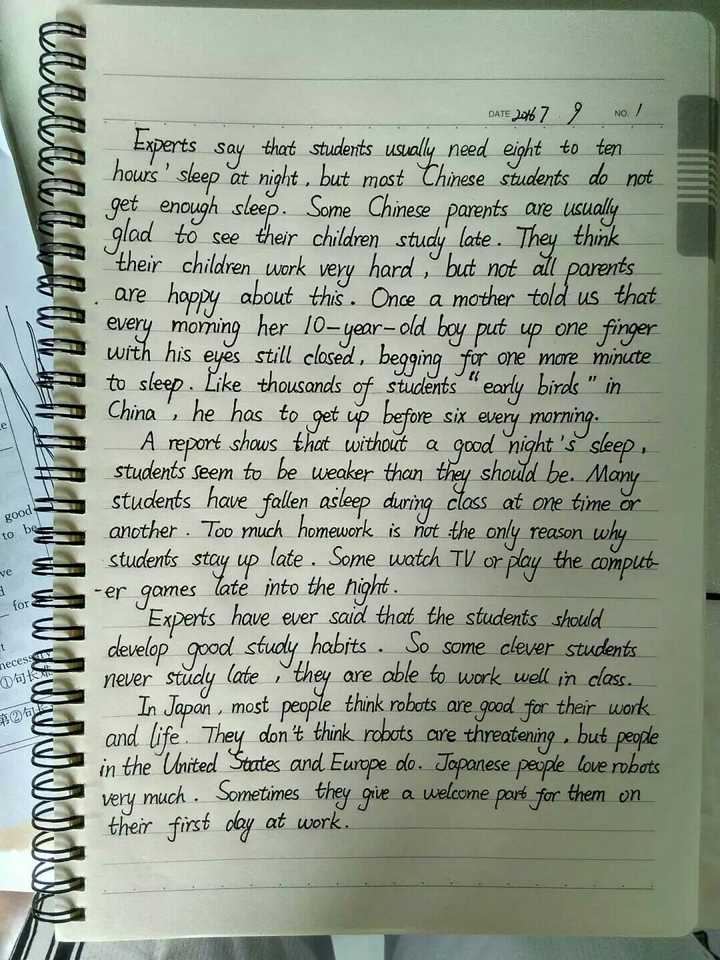 DATE 2016 7 9 NO. 1
Experts say that students usually need eight to ten
hours' sleep at night, but most Chinese students do not
get enough sleep. Some Chinese parents are usually
glad to see their children study late. They think
their children work very hard, but not all parents
are happy about this. Once a mother told us that
every morning her 10-year-old boy put up one finger
with his eyes still closed, begging for one more minute
to sleep. Like thousands of students "early birds" in
China, he has to get up before six every morning.
A report shows that without a good night's sleep,
students seem to be weaker than they should be. Many
students have fallen asleep during class at one time or
another. Too much homework is not the only reason why
students stay up late. Some watch TV or play the comput-
-er games late into the night.
Experts have ever said that the students should
develop good study habits. So some clever students
never study late, they are able to work well in class.
In Japan, most people think robots are good for their work
and life. They don't think robots are threatening, but people
in the United States and Europe do. Japanese people love robots
very much. Sometimes they give a welcome part for them on
their first day at work.
good
to be
ve
for
necessary
①句长难
第②句长